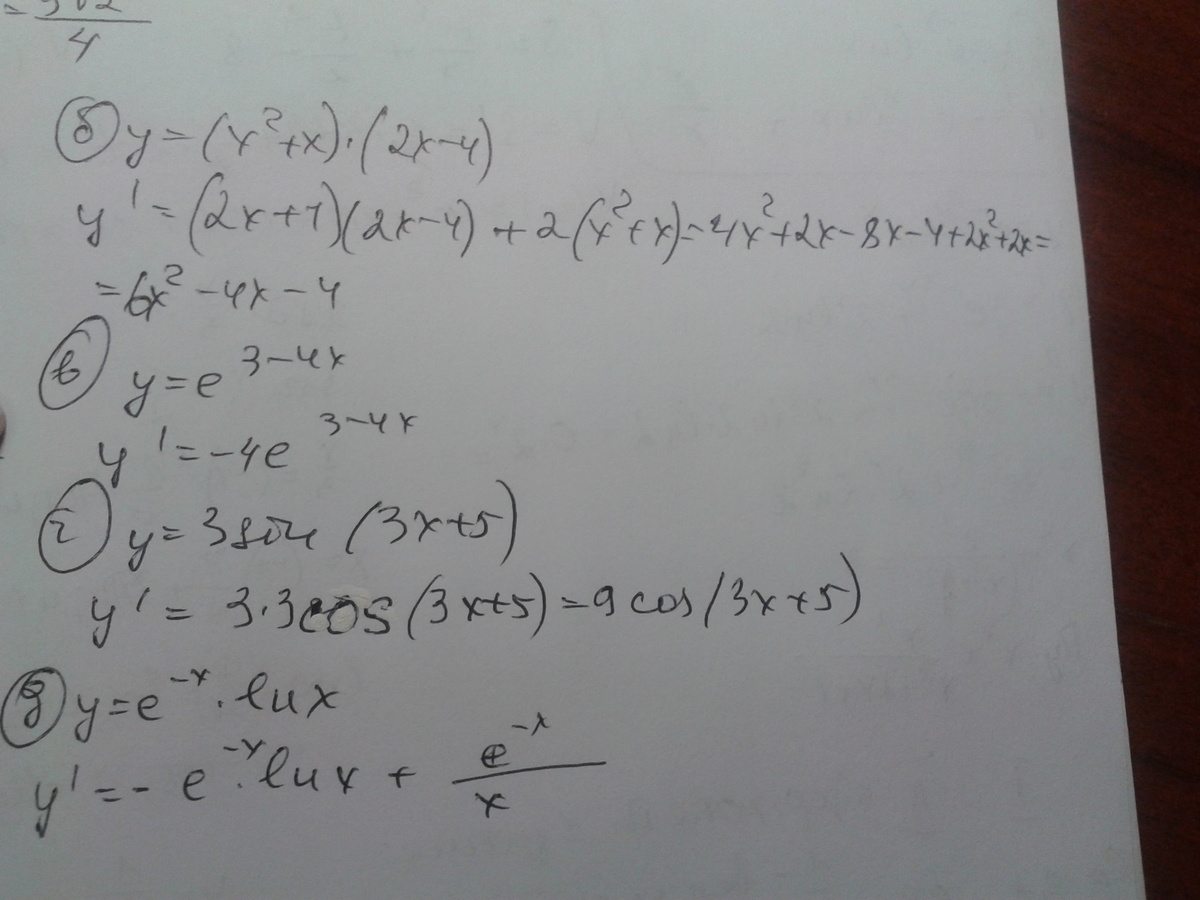 4
б) y = (x²+x)·(2x-4)
y' = (2x+1)(2x-4) + 2(x²+x) = 4x²+2x-8x-4+2x²+2x =
= 6x² - 4x - 4
в) y = e^{3-4x}
y' = -4e^{3-4x}
г) y = 3 sin (3x+5)
y' = 3·3cos(3x+5) = 9 cos(3x+5)
д) y = e^{-x} · ln x
y' = - e^{-x} · ln x + e^{-x}/x